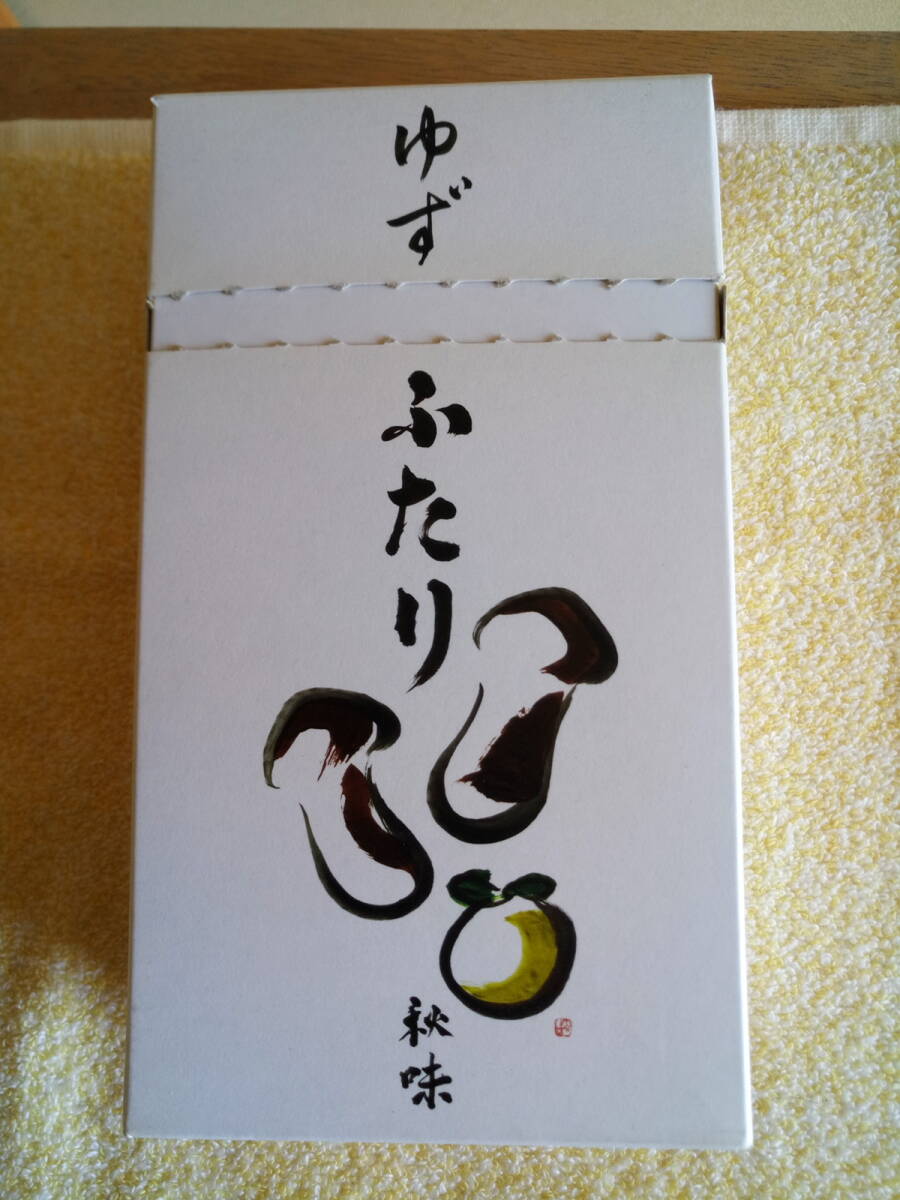 ゆず
ふたり
秋味